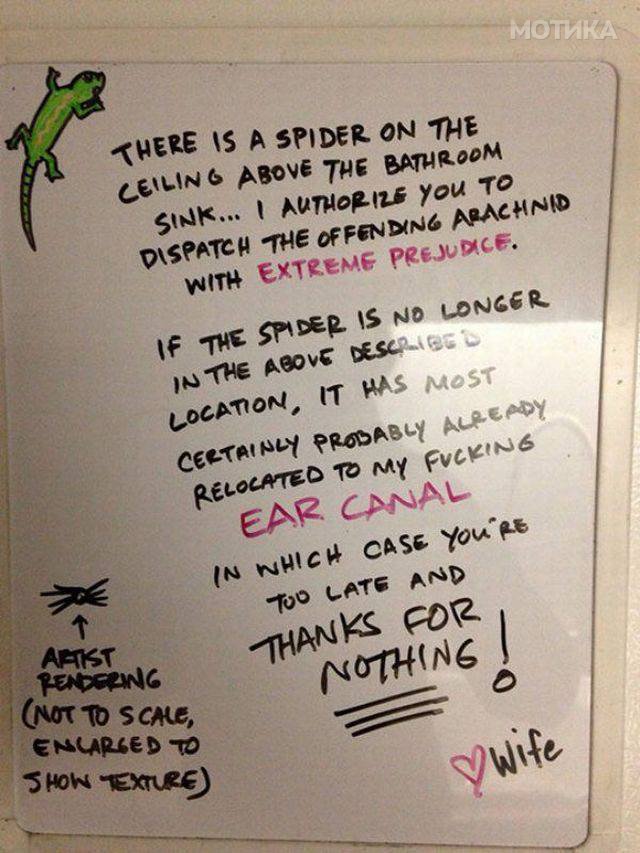 МОТИКА
THERE IS A SPIDER ON THE
CEILING ABOVE THE BATHROOM
SINK... I AUTHORIZE YOU TO
DISPATCH THE OFFENDING ARACHNID
WITH EXTREME PREJUDICE.
IF THE SPIDER IS NO LONGER
IN THE ABOVE DESCRIBED
LOCATION, IT HAS MOST
CERTAINLY PROBABLY ALREADY
RELOCATED TO MY FUCKING
EAR CANAL
IN WHICH CASE YOU'RE
TOO LATE AND
THANKS FOR
NOTHING!
♡ Wife
↑
ARTIST
RENDERING
(NOT TO SCALE,
ENLARGED TO
SHOW TEXTURE)